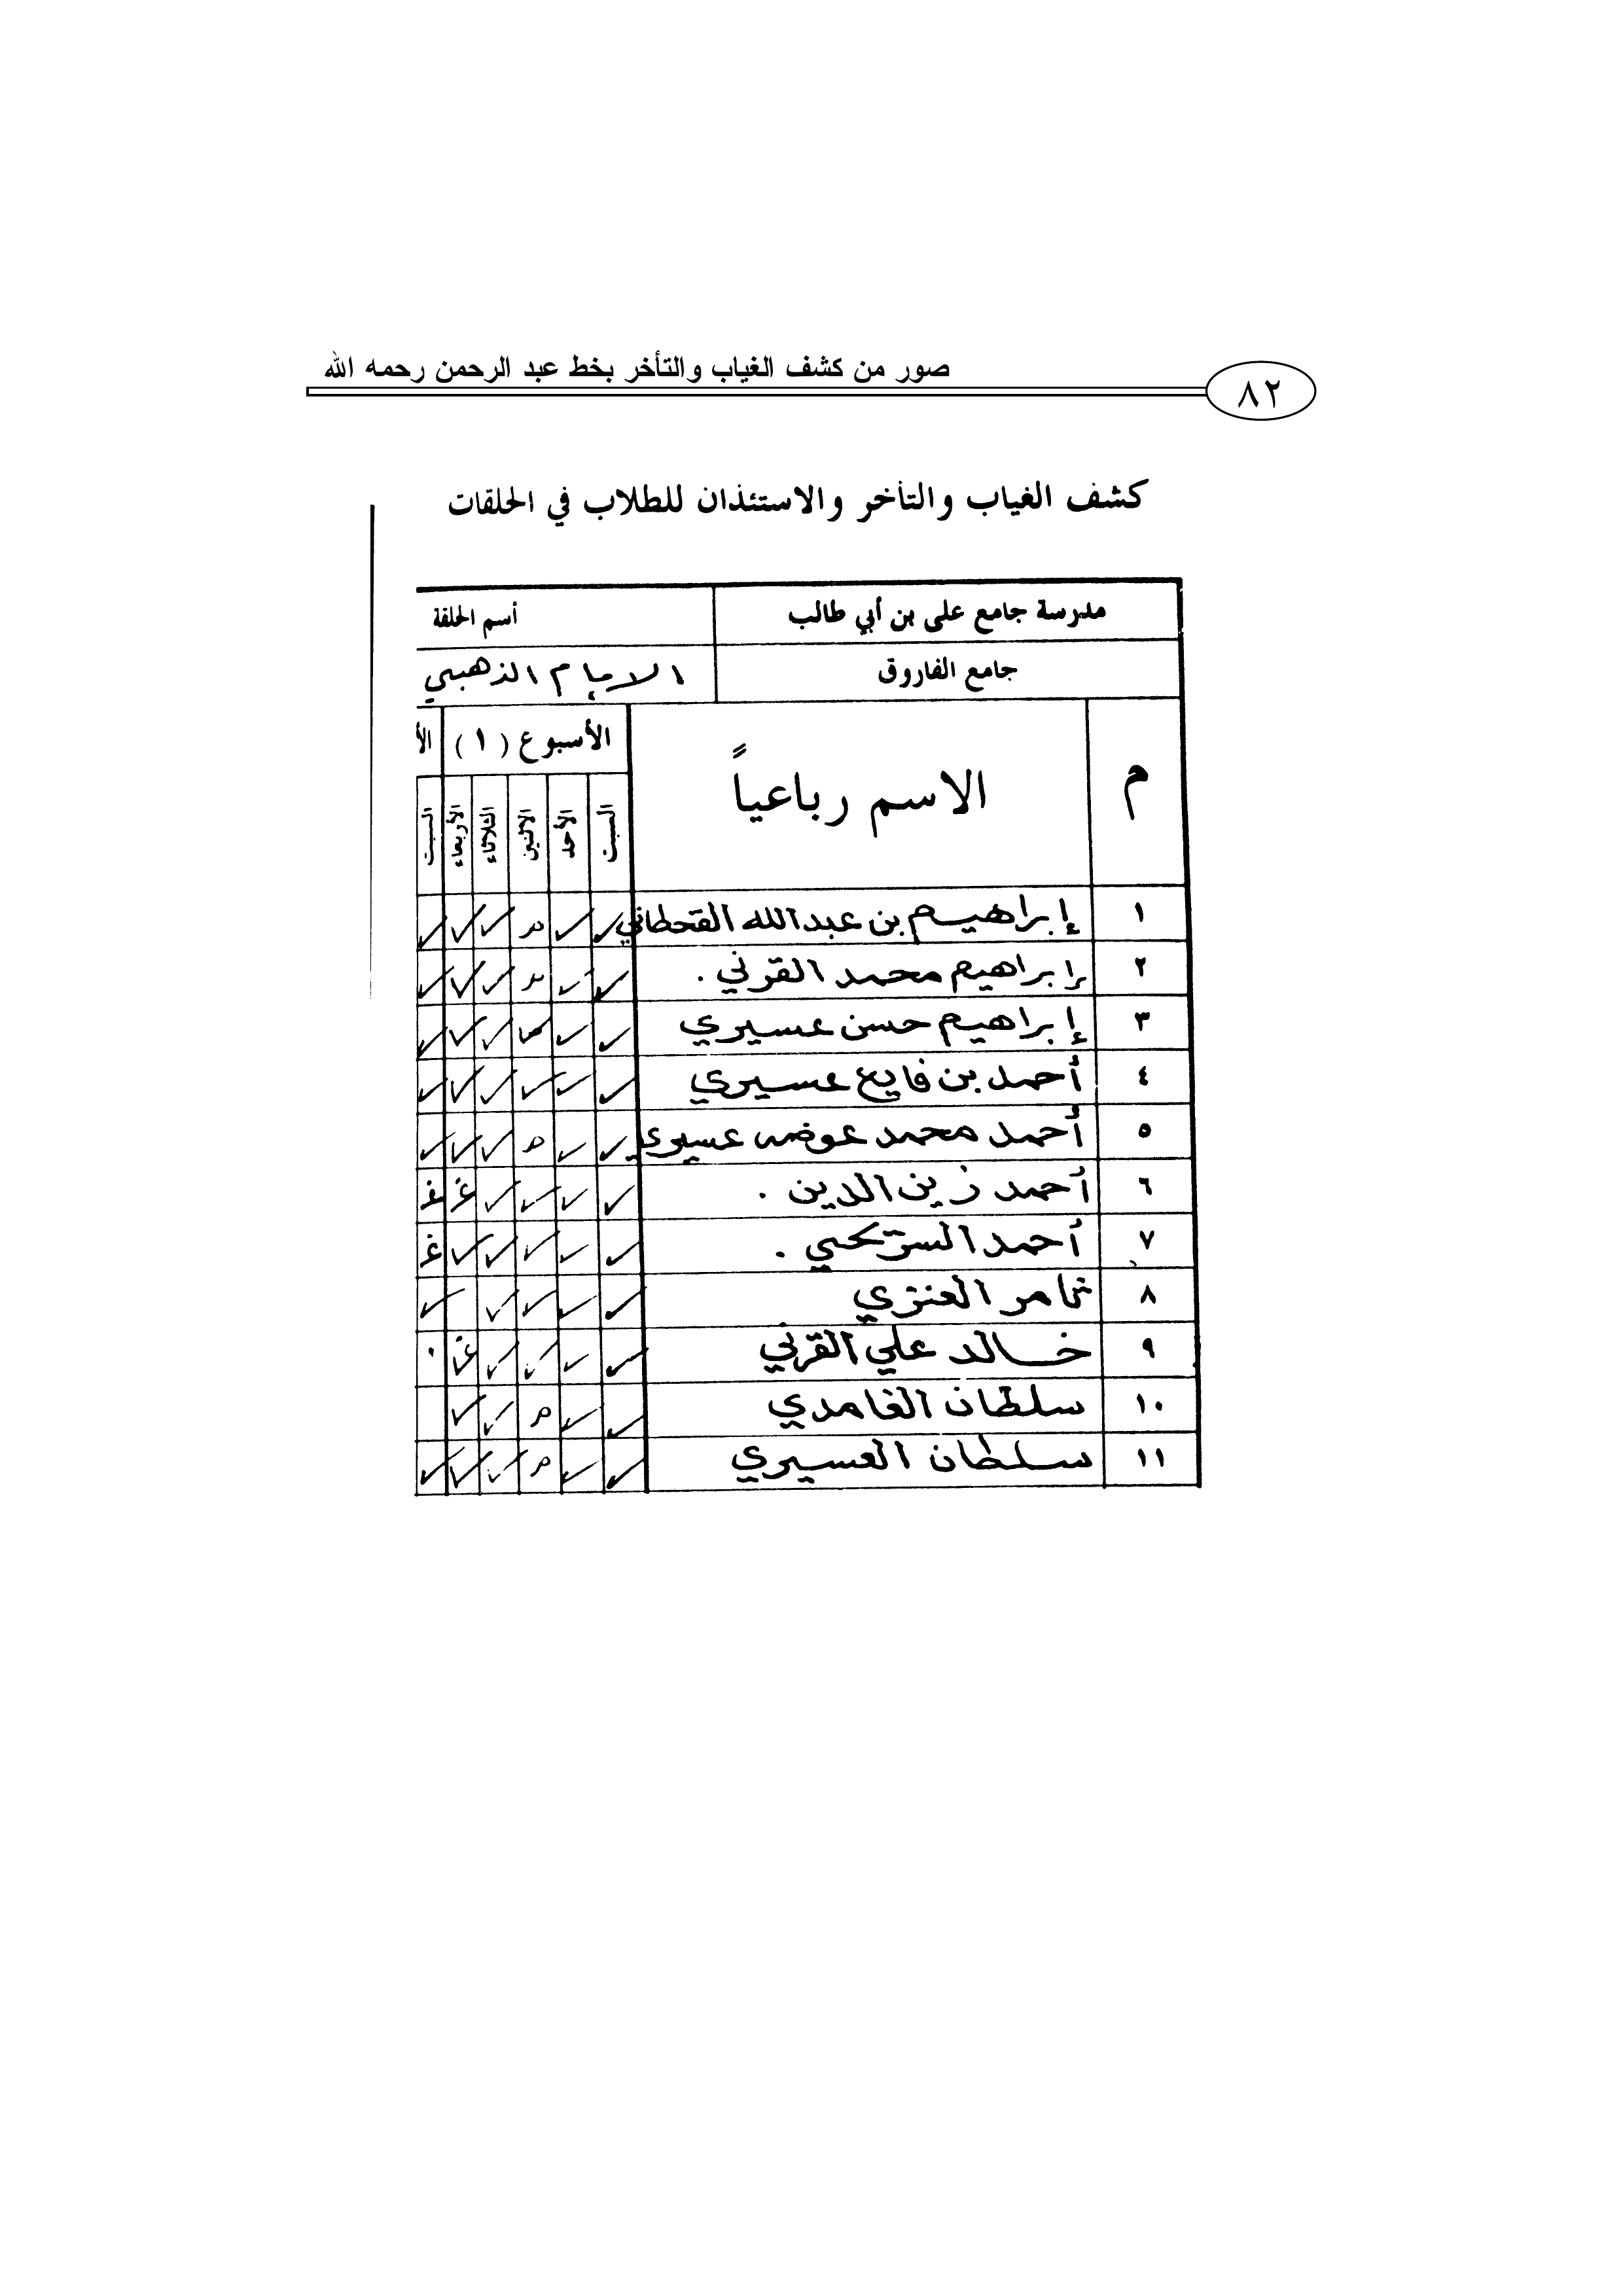 صور من كشف الغياب والتأخر بخط عبد الرحمن رحمه الله
٨٢
كشف الغياب والتأخر والاستئذان للطلاب في الحلقات
مدرسة جامع على بن أبي طالب أسم الحلقة
جامع الفاروق الامام الذهبي
م الاسم رباعياً الأسبوع (١) الأ
السبت الأحد الاثنين الثلاثاء الأربعاء السبت
١ إبراهيم بن عبدالله القحطاني ✓ ✓ م ✓ ✓ ✓
٢ إبراهيم محمد القرني . ✓ ✓ م ✓ ✓ ✓
٣ إبراهيم حسن عسيري ✓ ✓ ✓ ✓ ✓
٤ أحمد بن فايع عسيري ✓ ✓ ✓ ✓ ✓ ✓
٥ أحمد محمد عوضه عسيري ✓ ✓ م ✓ ✓ ✓
٦ أحمد زين الدين . ✓ ✓ ✓ ✓ غ غ
٧ أحمد ✓ ✓ ✓ ✓ ✓ غ
٨ ثامر العنزي ✓ ✓ ✓ ✓ ✓
٩ خالد علي القرني ✓ ✓ ✓ ✓ غ .
١٠ سلطان الغامدي ✓ ✓ م ✓ ✓
١١ سلطان العسيري ✓ ✓ م ✓ ✓ ✓